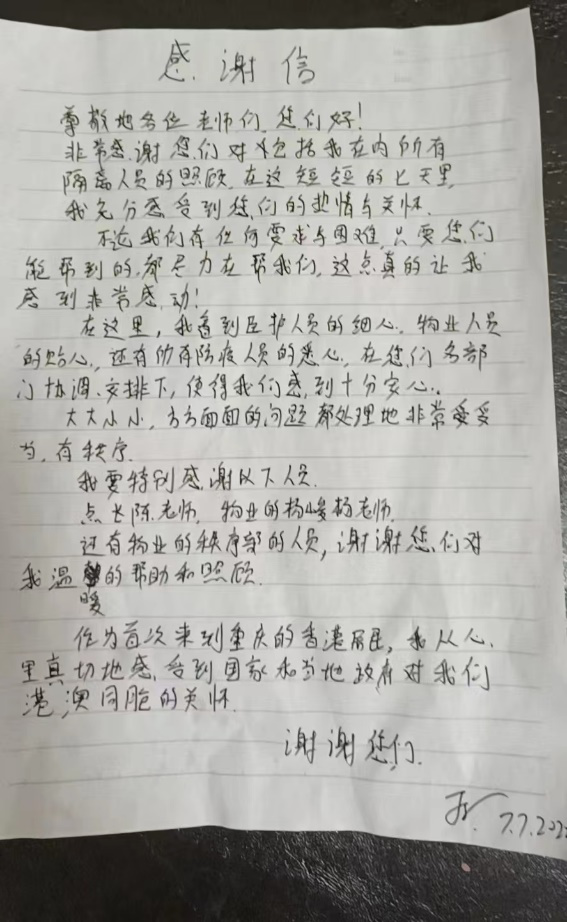 感谢信
尊敬地各位老师们,您们好!
非常感谢您们对 包括我在内所有
隔离人员的照顾.在这短短的七天里,
我充分感受到您们的热情与关怀.
不论我们有任何要求与困难,只要您们
能帮到的,都尽力在帮我们,这点真的让我
感到非常感动!
在这里,我看到医护人员的细心.物业人员
的贴心,还有所有防疫人员的悉心,在您们各部
门协调、安排下,使得我们感到十分安心.
大大小小,方方面面的问题都处理地非常妥妥
当,有秩序.
我要特别感谢以下人员.
点长陈老师,物业的杨 杨老师.
还有物业的秩序部的人员,谢谢您们对
我温 的帮助和照顾.
暖
作为首次来到重庆的香港居民,我从心
里真切地感受到国家和当地政府对我们
港澳同胞的关怀.
谢谢您们.
7.7.202